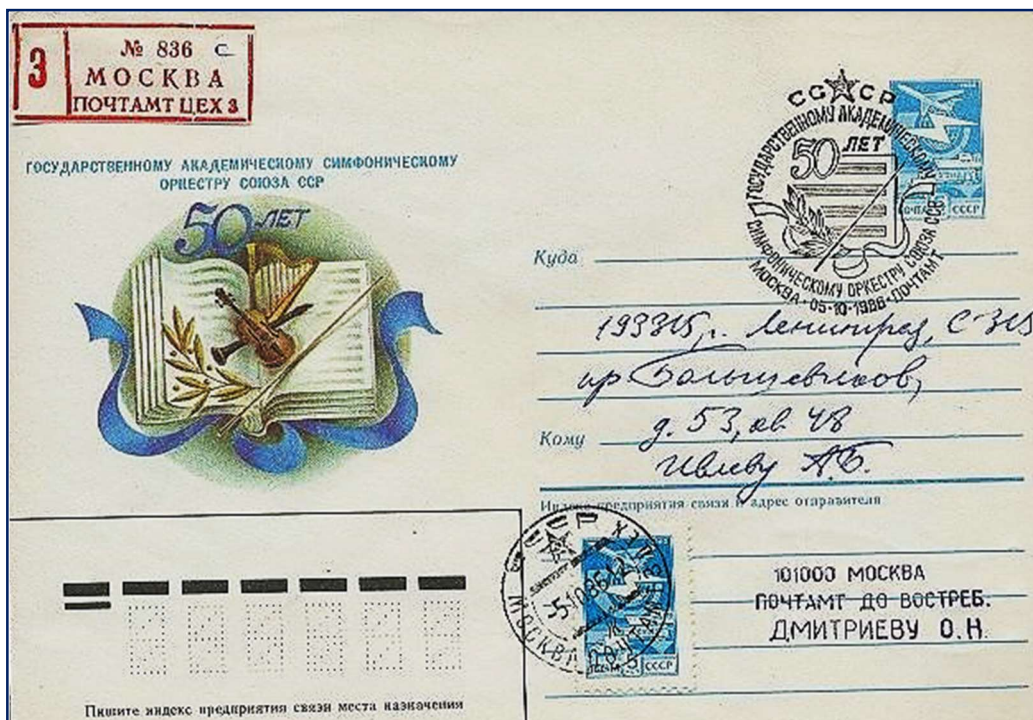 З
№ 836 с
МОСКВА
ПОЧТАМТ ЦЕХ 3
ГОСУДАРСТВЕННОМУ АКАДЕМИЧЕСКОМУ СИМФОНИЧЕСКОМУ
ОРКЕСТРУ СОЮЗА ССР
50 ЛЕТ
СССР
ГОСУДАРСТВЕННОМУ АКАДЕМИЧЕСКОМУ
50 ЛЕТ
СИМФОНИЧЕСКОМУ ОРКЕСТРУ СОЮЗА ССР
МОСКВА · 05-10-1986 · ПОЧТАМТ
ПОЧТА 5 СССР
Куда
193315, г. Ленинград, С-315
пр Большевиков,
д. 53, кв. 48
Кому
Ивлеву А.Б.
Индекс предприятия связи и адрес отправителя
101000 МОСКВА
ПОЧТАМТ ДО ВОСТРЕБ.
ДМИТРИЕВУ О.Н.
СССР
-5.1086
МОСКВА ПОЧТАМТ
ПОЧТА 5 СССР
Пишите индекс предприятия связи места назначения